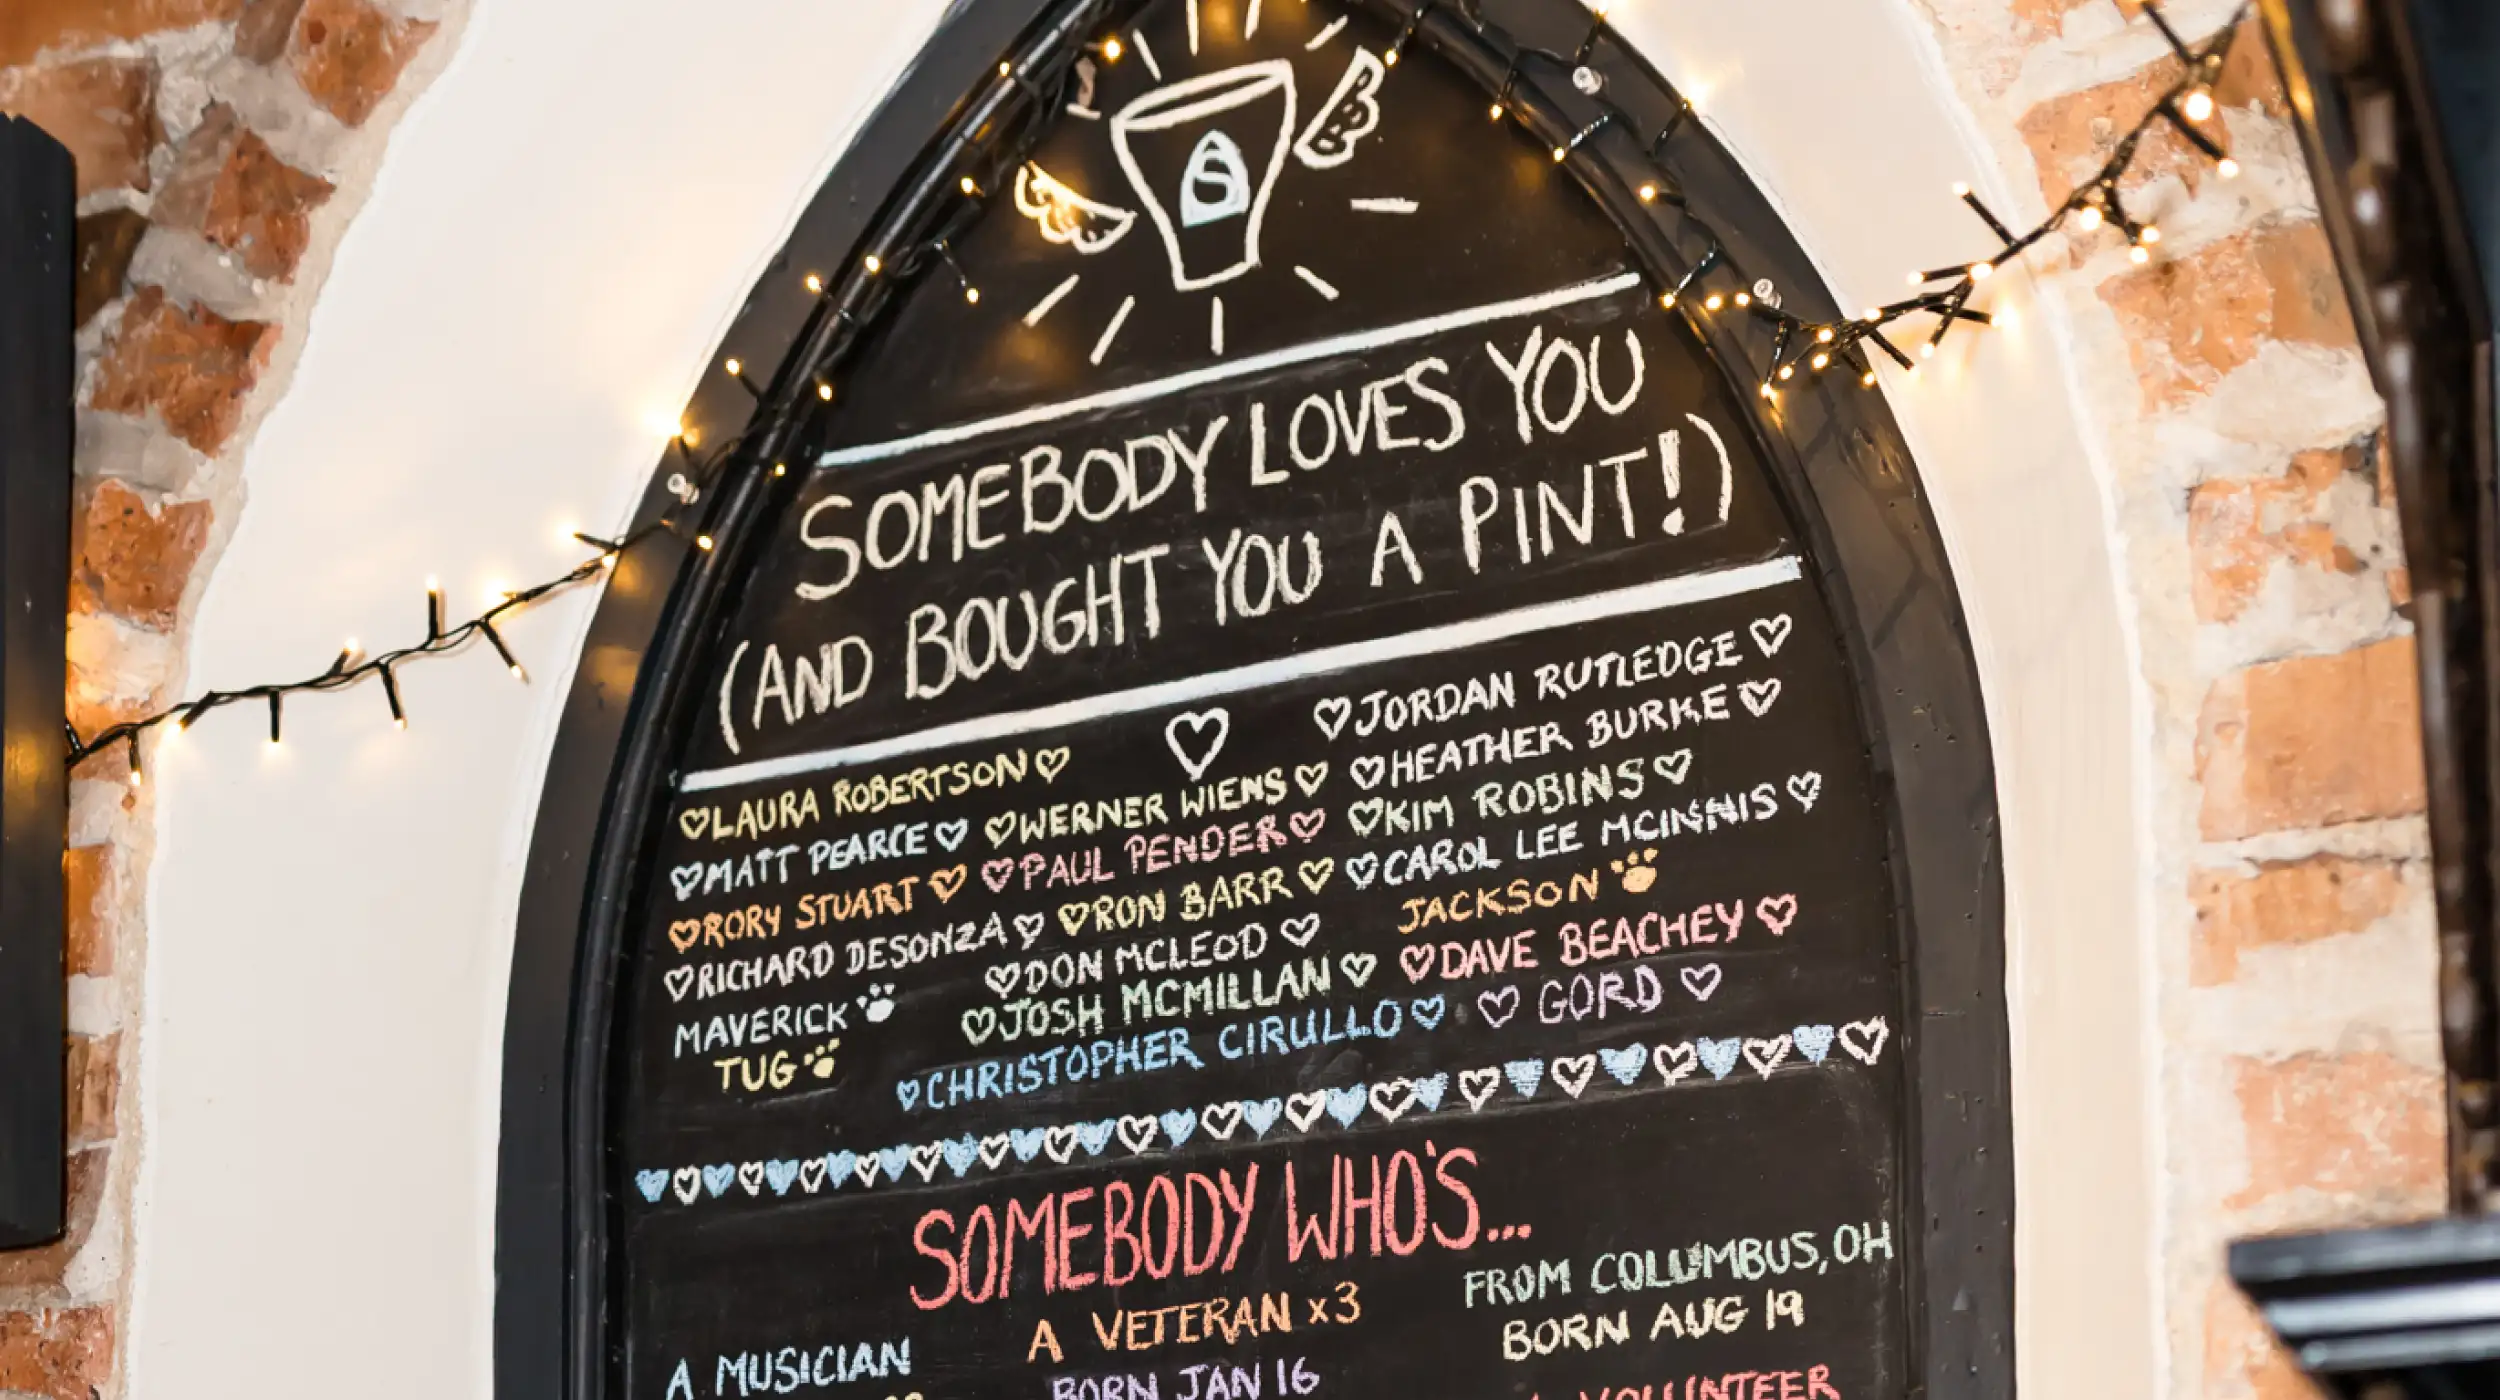 S
SOMEBODY LOVES YOU
(AND BOUGHT YOU A PINT!)
LAURA ROBERTSON
MATT PEARCE
RORY STUART
RICHARD DESONZA
MAVERICK
TUG
WERNER WIENS
PAUL PENDER
RON BARR
DON MCLEOD
JOSH MCMILLAN
CHRISTOPHER CIRULLO
JORDAN RUTLEDGE
HEATHER BURKE
KIM ROBINS
CAROL LEE MCINNIS
JACKSON
DAVE BEACHEY
GORD
SOMEBODY WHO'S...
A MUSICIAN
A VETERAN x3
BORN JAN 16
FROM COLUMBUS, OH
BORN AUG 19
VOLUNTEER